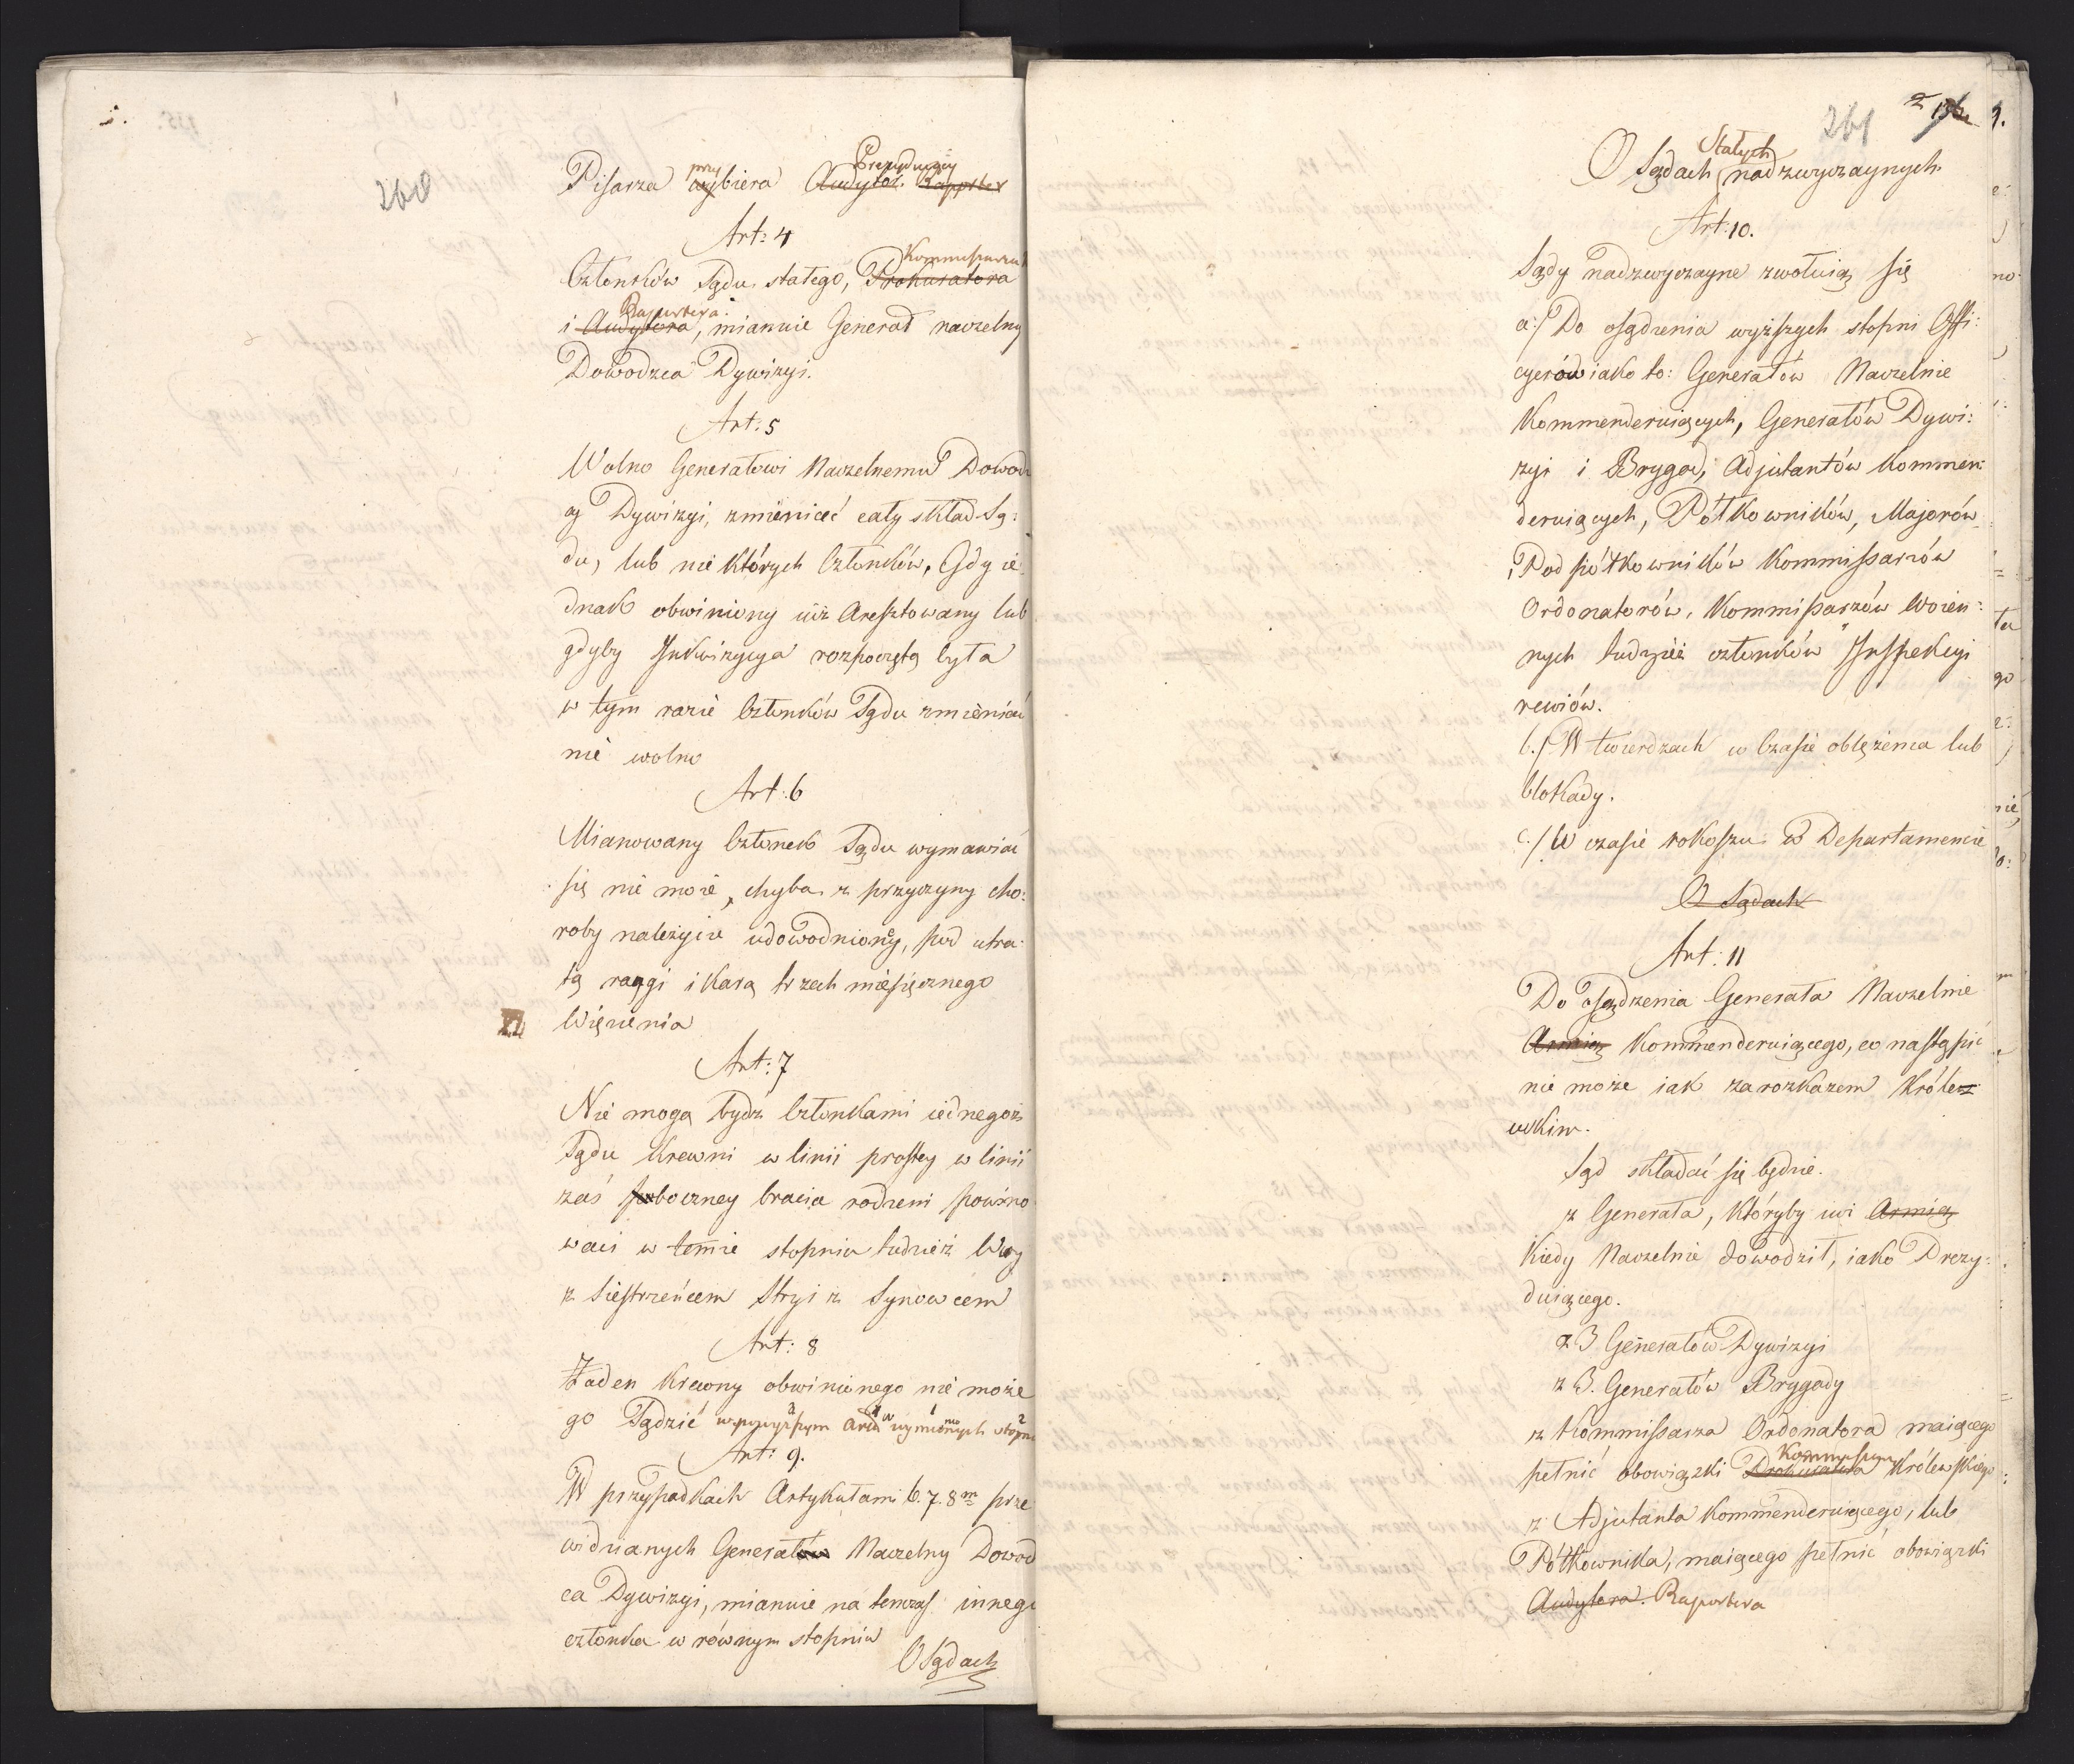 260
Prezyduiący
przy
Pisarza wybiera Audytor. Rapporter
Art: 4
Kommissarza
Członków Sądu stałego, Prokuratora
Raportera
i Audytora, mianuie Generał naczelny
Dowodzca Dywizyi.
Art: 5
Wolno Generałowi Naczelnemu Dowod
cy Dywizyi, zmieniać cały skład Są:
du, lub nie których Członków, Gdy ie
dnak obwiniony iuż Aresztowany lub
gdyby Inkwizycya rozpoczętą była
w tym razie Członków Sądu zmieniać
nie wolno
Art: 6
Mianowany Członek Sądu wymawiać
się nie może, chyba z przyczyny cho:
roby należycie udowodnioney, pod utra:
tą rangi i karą trzech miesięcznego
Więzienia
Art: 7
Nie mogą bydź Członkami iednegoż
Sądu Krewni w linii prostey w linii
zaś poboczney bracia rodzeni powino
waci w temże stopniu tudzież Wuy
z Siestrzeńcem Stryi z Synowcem
Art: 8
Żaden Krewny obwinionego nie może
go Sądzić w powyższym Arti wymienionych stopniu
Art: 9.
W przypadkach Artykułami 6. 7. 8m prze
widzianych Generałow Naczelny Dowod
ca Dywizyi, mianuie na temczas innego
członka w równym stopniu
O Sądach
261
2
Stałych
O Sądach nadzwyczaynych.
Art: 10.
Sądy nadzwyczayne zwołuią się
a:/ Do osądzenia wyższych stopni Offi:
cyerów iako to: Generałów Naczelnie
Kommenderuiących, Generałów Dywi:
zyi i Brygad, Adjutantów Kommen:
deruiących, Półkowników, Majorów
, Pod półkowników Kommissarzów
Ordonatorów, Kommissarzów Woien:
nych tudzież członków Inspekcyi
rewiów.
b./ W twierdzach w Czasie oblężenia lub
blokady.
c./ W czasie rokoszu w Departamencie
O Sądach
Art: 11
Do osądzenia Generała Naczelnie
Armią Kommenderuiącego, co nastąpić
nie może iak za rozkazem Króle=
wskim.
Sąd składać się będzie.
z Generała, któryby iuż Armią
Kiedy Naczelnie dowodził, iako Prezy:
duiącego.
z 3 Generałów Dywizyi
z 3. Generałów Brygady
z Kommissarza Ordonatora maiącego
Kommissarza
pełnić obowiązki Prokuratora Królewskiego
z Adjutanta Kommenderuiącego, lub
Półkownika, maiącego pełnić obowiązki
Audytora. Raportera